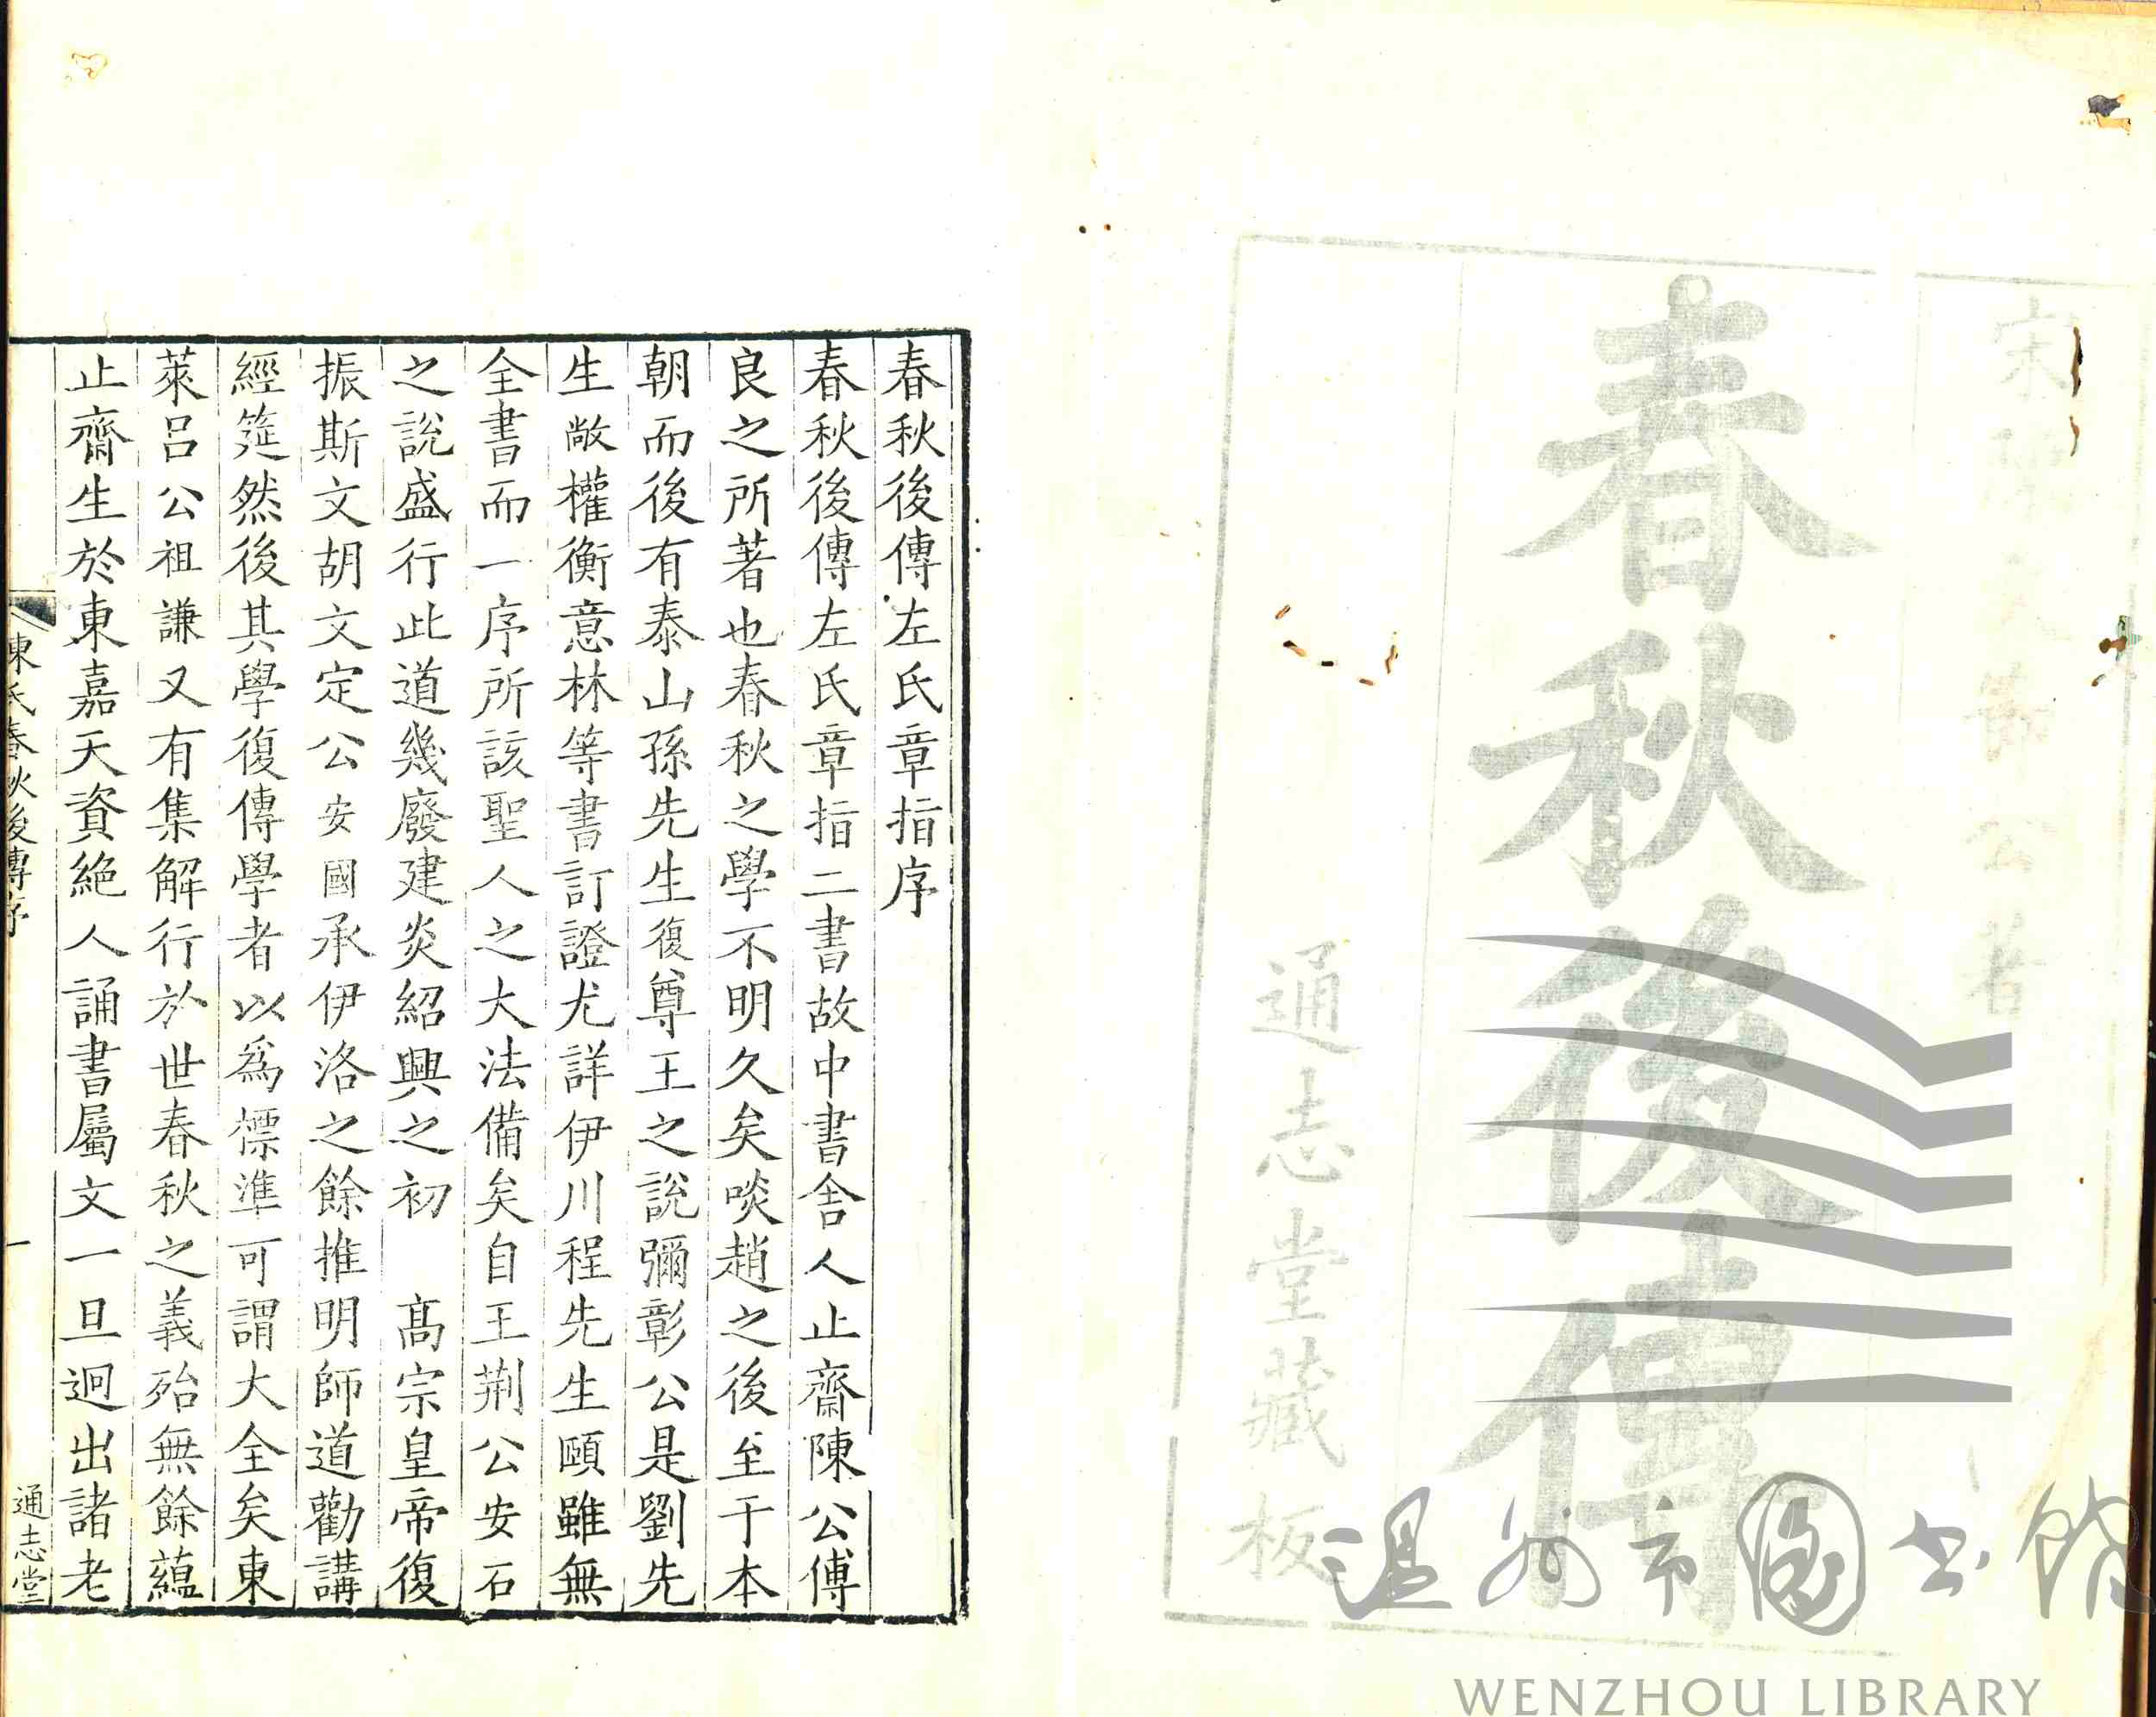 宋陳文節公著
春秋後傳
通志堂藏板
春秋後傳左氏章指序
春秋後傳左氏章指二書故中書舍人止齋陳公傅
良之所著也春秋之學不明久矣啖趙之後至于本
朝而後有泰山孫先生復尊王之說彌彰公是劉先
生敞權衡意林等書訂證尤詳伊川程先生頤雖無
全書而一序所該聖人之大法備矣自王荆公安石
之說盛行此道幾廢建炎紹興之初　髙宗皇帝復
振斯文胡文定公安國承伊洛之餘推明師道勸講
經筵然後其學復傳學者以爲標準可謂大全矣東
萊呂公祖謙又有集解行於世春秋之義殆無餘蘊
止齋生於東嘉天資絶人誦書屬文一旦迥出諸老
陳氏春秋後傳序
一
通志堂
温州市图书馆
WENZHOU LIBRARY